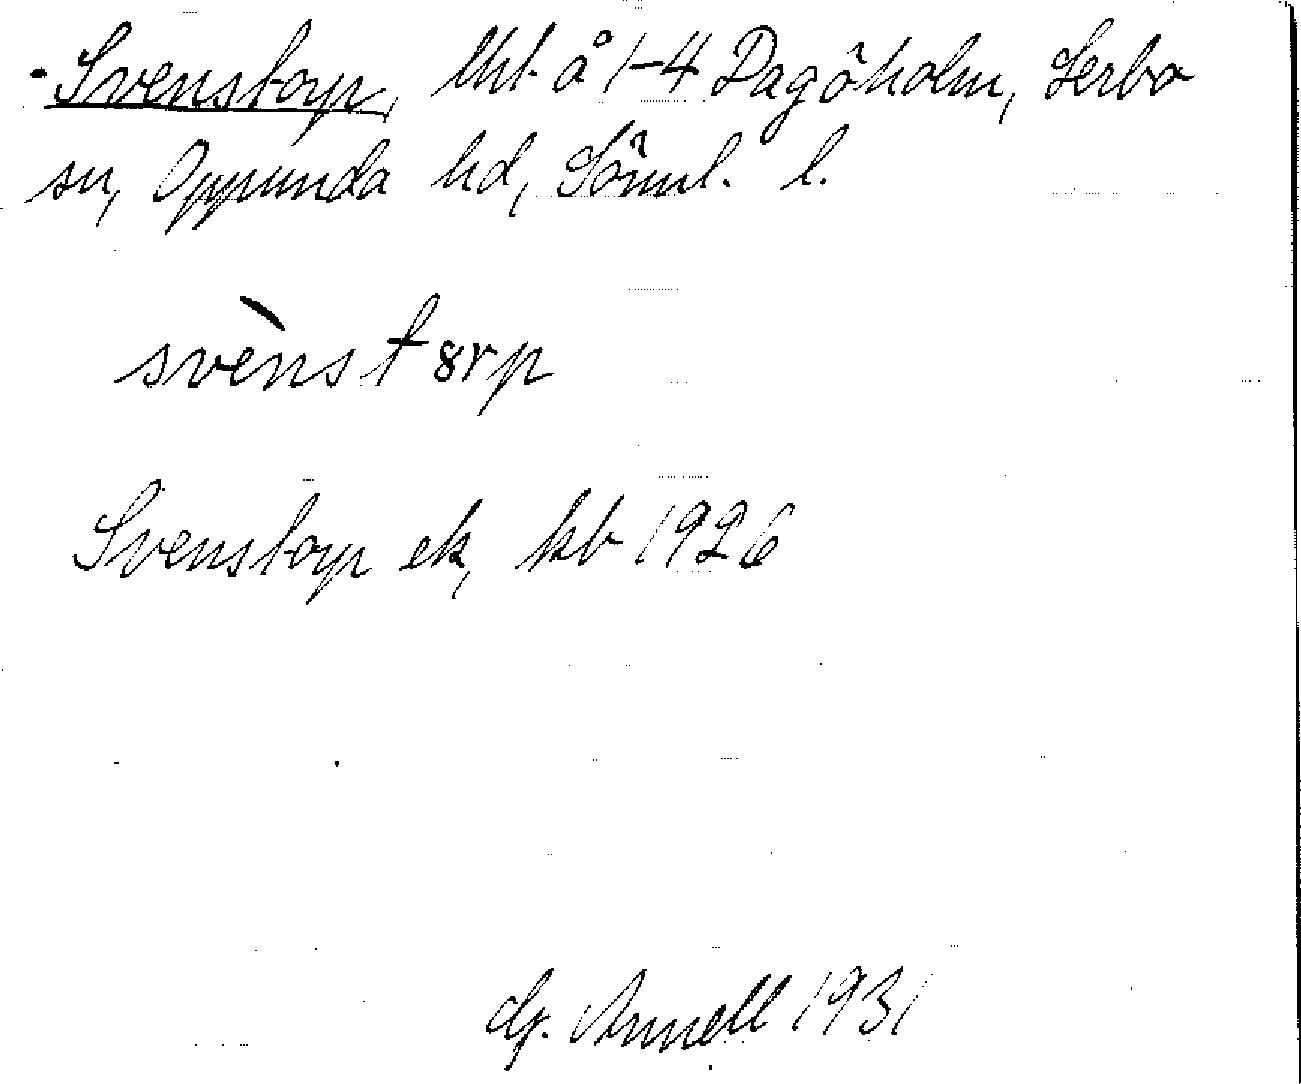 - Svenstorp, lht. å 1-4 Dagöholm, Lerbo
sn, Oppunda hd, Söml. l.
svènst8rp
Svenstorp ek, kb 1926
G. Annell 1931